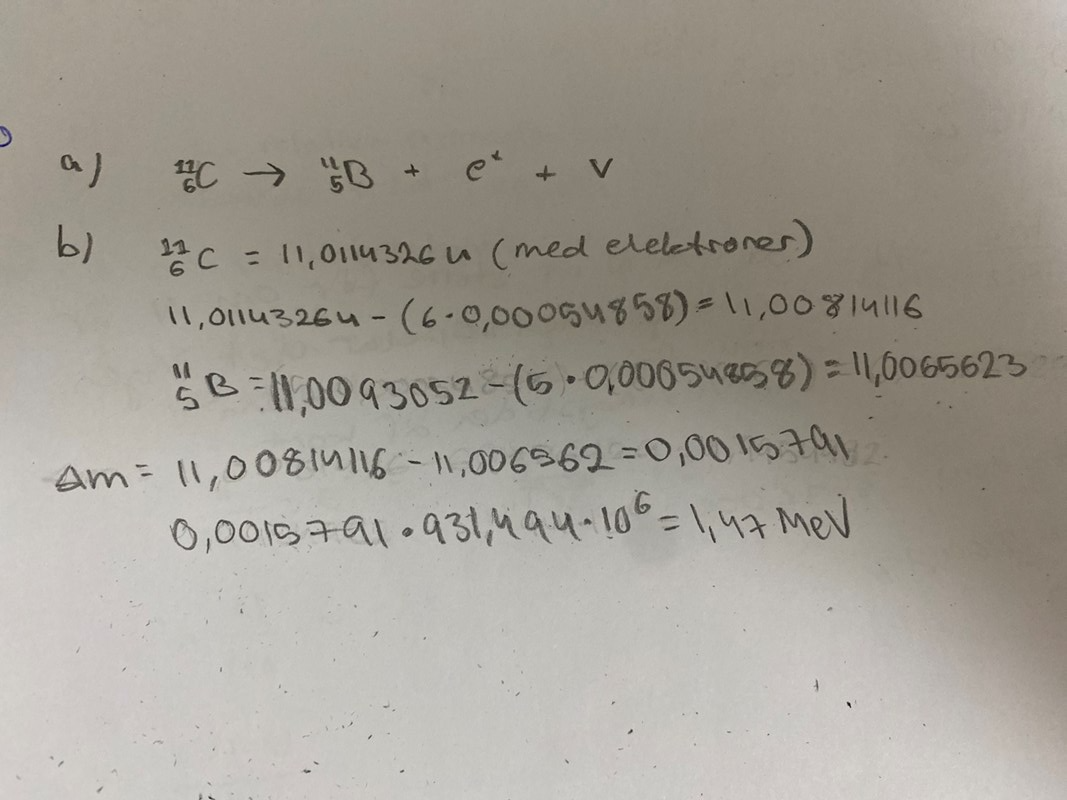 a) ¹¹₆C → ¹¹₅B + e⁺ + ν
b) ¹¹₆C = 11,0114326 u (med elektroner)
11,0114326u - (6·0,00054858) = 11,00814116
¹¹₅B = 11,0093052 - (5·0,00054858) = 11,0065623
Δm = 11,00814116 - 11,006562 = 0,0015791
0,0015791·931,494·10⁶ = 1,47 MeV